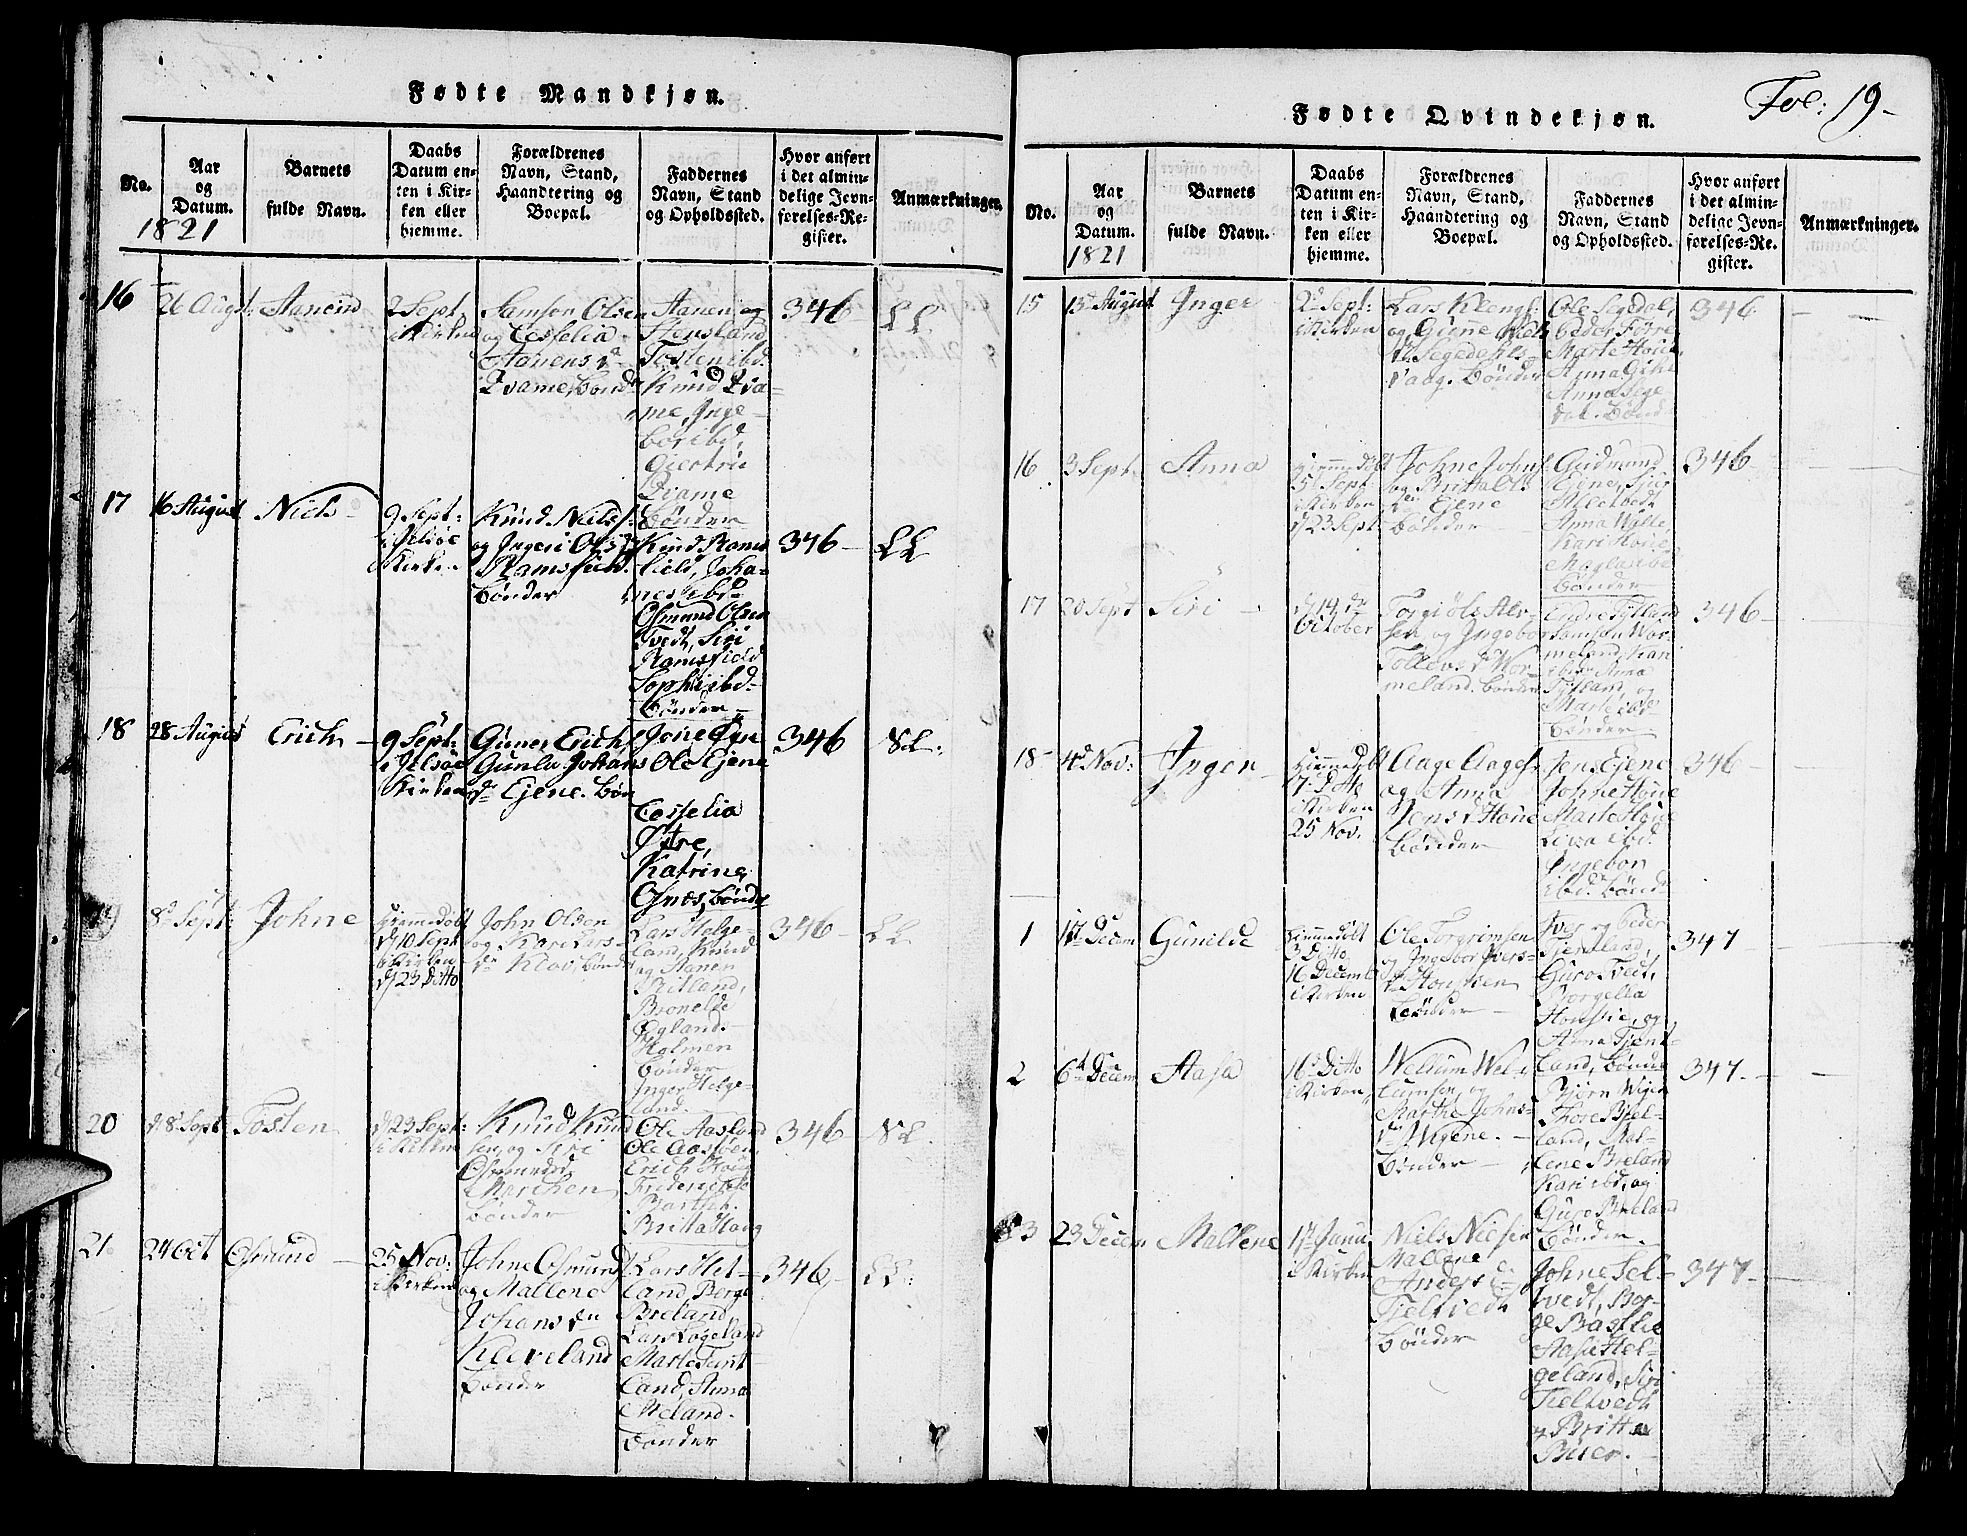 Fødte Mandkjøn.
No.
Aar
og
Datum.
1821
Barnets
fulde Navn.
Daabs
Datum en-
ten i Kir-
ken eller
hjemme.
Forældrenes
Navn, Stand,
Haandtering og
Boepæl.
Faddernes
Navn, Stand
og Opholdssted.
Hvor anført
i det almin-
delige Jevn-
førelses-Re-
gister.
Anmærkninger.
16
26 Augst.
Aanend
2 Sept
i Kirken
Samson Olsen
og Cesselia
Aanens d.
Qvame, bønd
Aanen og
Stensland
Tosten ibd.
Knud Qva-
me, Inge-
bor ibd,
Giertru
Qvame
bønder
346
LL
17
16 August
Niels
9 Sept:
i Jelsøe
Kirke
Knud Nielss:
og Ingeri Ols d
Ramsfield.
bønder
Knud Rams
field, Joha-
nes ibd
Osmund Olsen
Tvedt, Siri
Ramsfield
Sophi ibd
bønder
346
LL
18
28 August
Erich
9 Sept:
i Jelsøe
Kirken
Guner Erichs
Gunla Johans
dr Ejene. bøn
Jone Øen
Ole Ejene
Cesselia
Østre,
Katrine
Osnes, bønder
346
NL:
19
8d Sept:
Johne
hiemmedøbt
d 10 Sept
i Kirken
d 23 Ditto
John Olsen
og Kari Lars-
dr Klov, bønder
Lars Helge-
land, Knud
og Aanen
Bronelde
Øgland.
Holmen
bønder
Inger Helge-
land.
346
LL
20
d 8 Sept
Tosten
d 23 Sept:
i Kirken
Knud Knud
sen, og Siri
Osmunds d
bønder
Ole Aasland
Ole Aasbøe,
Erich Houg
Barthh.
Britta Houg
346
NL.
21.
24 Oct
Osmund
25 Nov:
i Kirken
Johne Osmund
og Mallene
Johans dn
Kleiveland
bønder
Lars Hel-
land, Berge
Breland
Lars Løgeland
Marte Tent-
land, Anna
Meland.
bønder
346
LL:
Fødte Qvindekjøn.
Fol: 19-
No.
Aar
og
Datum.
1821
Barnets
fulde Navn.
Daabs
Datum en-
ten i Kir-
ken eller
hjemme.
Forældrenes
Navn, Stand,
Haandtering og
Boepæl.
Faddernes
Navn, Stand
og Opholdssted.
Hvor anført
i det almin-
delige Jevn-
førelses-Re-
gister.
Anmærkninger.
15
15 August
Inger
2d Sept:
i Kirken
Lars
og Giene Niels
Vaag. bønder
Ole Segedal,
Peder Førre
Marte Houe
Anna
Anna Sege
dal. bønd
346
16
3 Sept.
Anna
hiemmedøbt
5 Sept:
i Kirken
d 23 Sept:
Johne Johns:
og Britta Ols
Ejene
bønder
Gudmund
Ejene,
Anna Walle,
Kari Houe
bønder
346
17
20 Sept
Siri
d 14 de
October
Torgiols Alv-
sen, og Ingebor
Tollevs d Wor-
meland. bønder
Endre Tytland
Samson Wor-
meland, Kari
ibd, Anna
Tytland, og
Marte ibd
bønder
346
18
4d Nov:
Inger
hiemmedøbt
7 Ditto
i Kirken
25 Nov.
Aage Aages:
og Anna
Jens d Houe
bønder
Jens Ejene
Johne Houe
Marte Houe
Liva ibd.
Ingebor
ibd. bønd
346
1
1st Decem
Gunilde
hiemmedøbt
3 Ditto
16 Decemb
i Kirken
Ole Torgrimsen
og Ingebor Ivers-
dr Honstien
bønder
Iver og Peder
Tientland,
Guro Tvedt,
Borgella
Honstie, og
Anna Tient-
land, bønder
347
2
6t Decem
Aasa
16d Ditto
i Kirken
Wellum Wel-
lumsen, og
Marthe Johns-
dr Wigene.
bønder
Biørn Wigen
Thore Biel-
land, Mal-
lene Breland
Kari ibd, og
Guro Breland
bønder.
347
3
23 Decem
Mallene
1st Janu
i Kirken
Niels Nielsen
Mallene
Anders d.
Tieltvedt
bønder
Johne Sel-
tvedt, Bor-
ge Bastlie
Aasa Hel-
geland, Siri
Tieltvedt
og Britta
Buer.
347